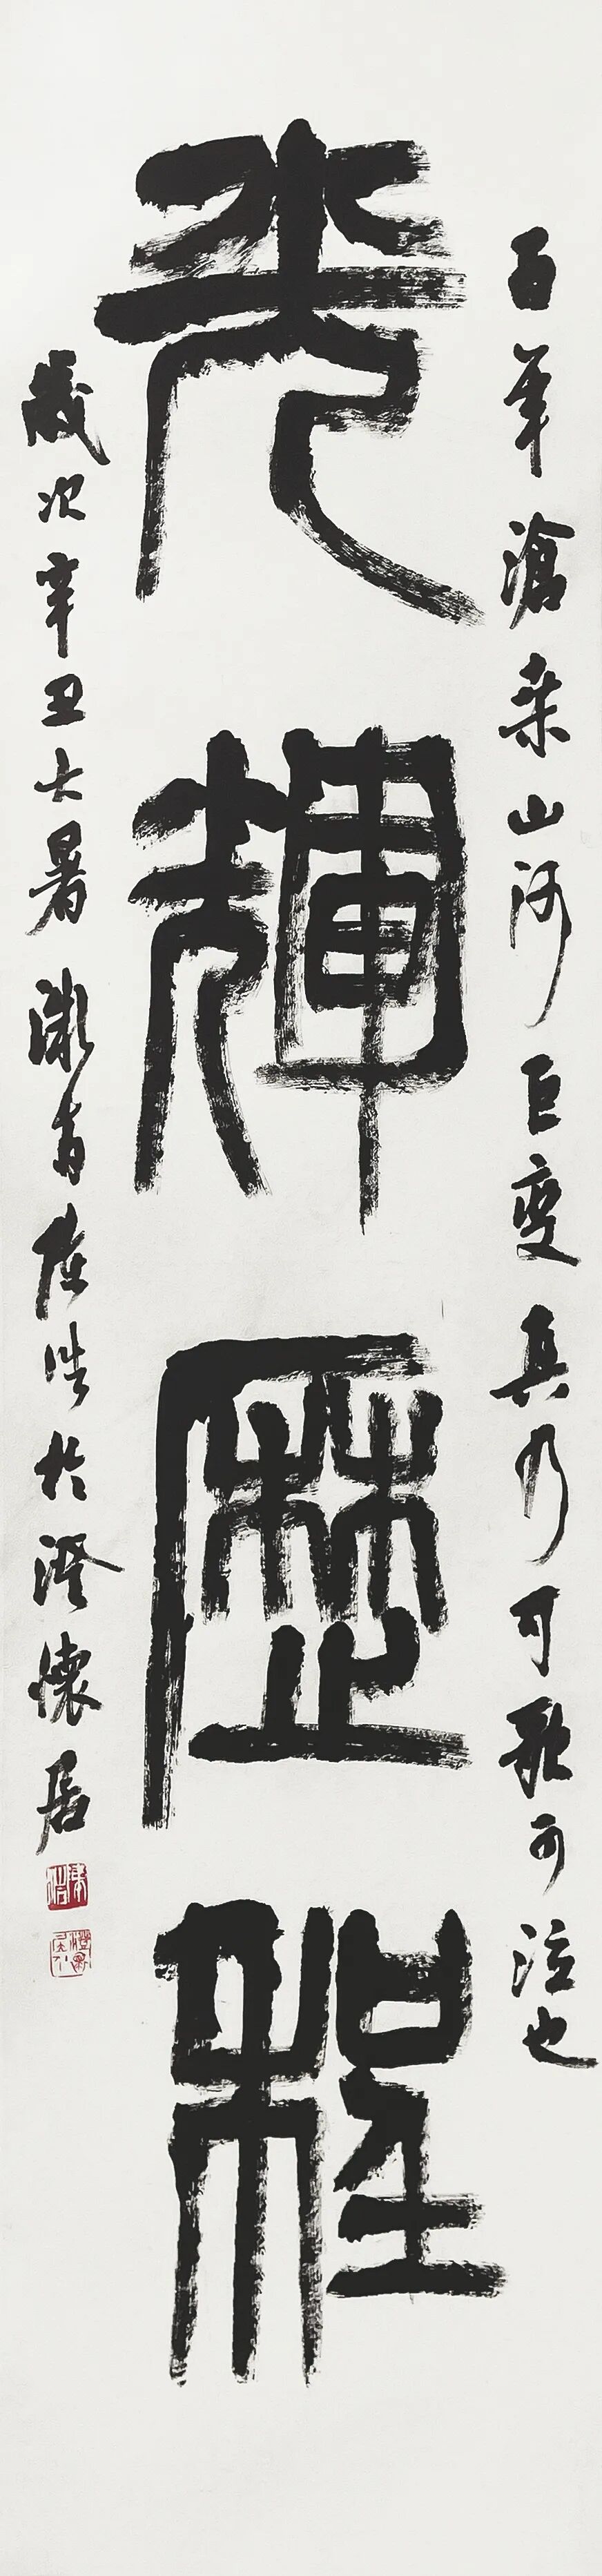 百年滄桑山河巨变真乃可歌可泣也
光輝歷程
歲次辛丑大暑陳浩於澄懷居
陳浩